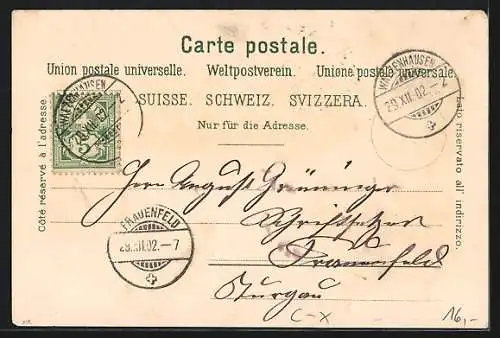 Carte postale.
Union postale universelle. Weltpostverein. Unione postale universale.
SUISSE. SCHWEIZ. SVIZZERA.
Nur für die Adresse.
Côté réservé à l'adresse.
Lato riservato all' indirizzo.
29.XII.02.
29.XII.02.–
FRAUENFELD
29.XII.02.–7
Herrn August Grüninger
Schriftsetzer
Frauenfeld
Thurgau
C-X
16,-